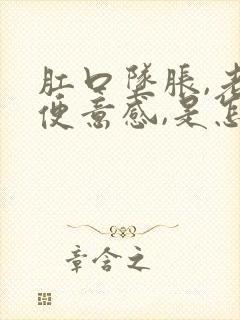 肛口隊脹,老
便意感,是怎
章含之